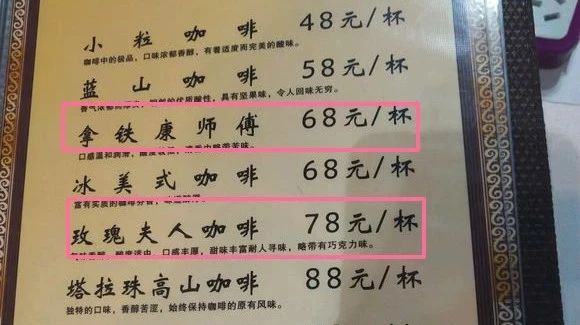 小粒咖啡 48元/杯
咖啡中的极品，口味浓郁香醇，有着适度而完美的酸味。
蓝山咖啡 58元/杯
优质酸性，具有坚果味，令人回味无穷。
拿铁康师傅 68元/杯
口感温和润滑，
冰美式咖啡 68元/杯
富有实质的咖啡芬香，
玫瑰夫人咖啡 78元/杯
口感丰厚，甜味丰富耐人寻味，略带有巧克力味。
塔拉珠高山咖啡 88元/杯
独特的口味，香醇苦涩，始终保持咖啡的原有风味。